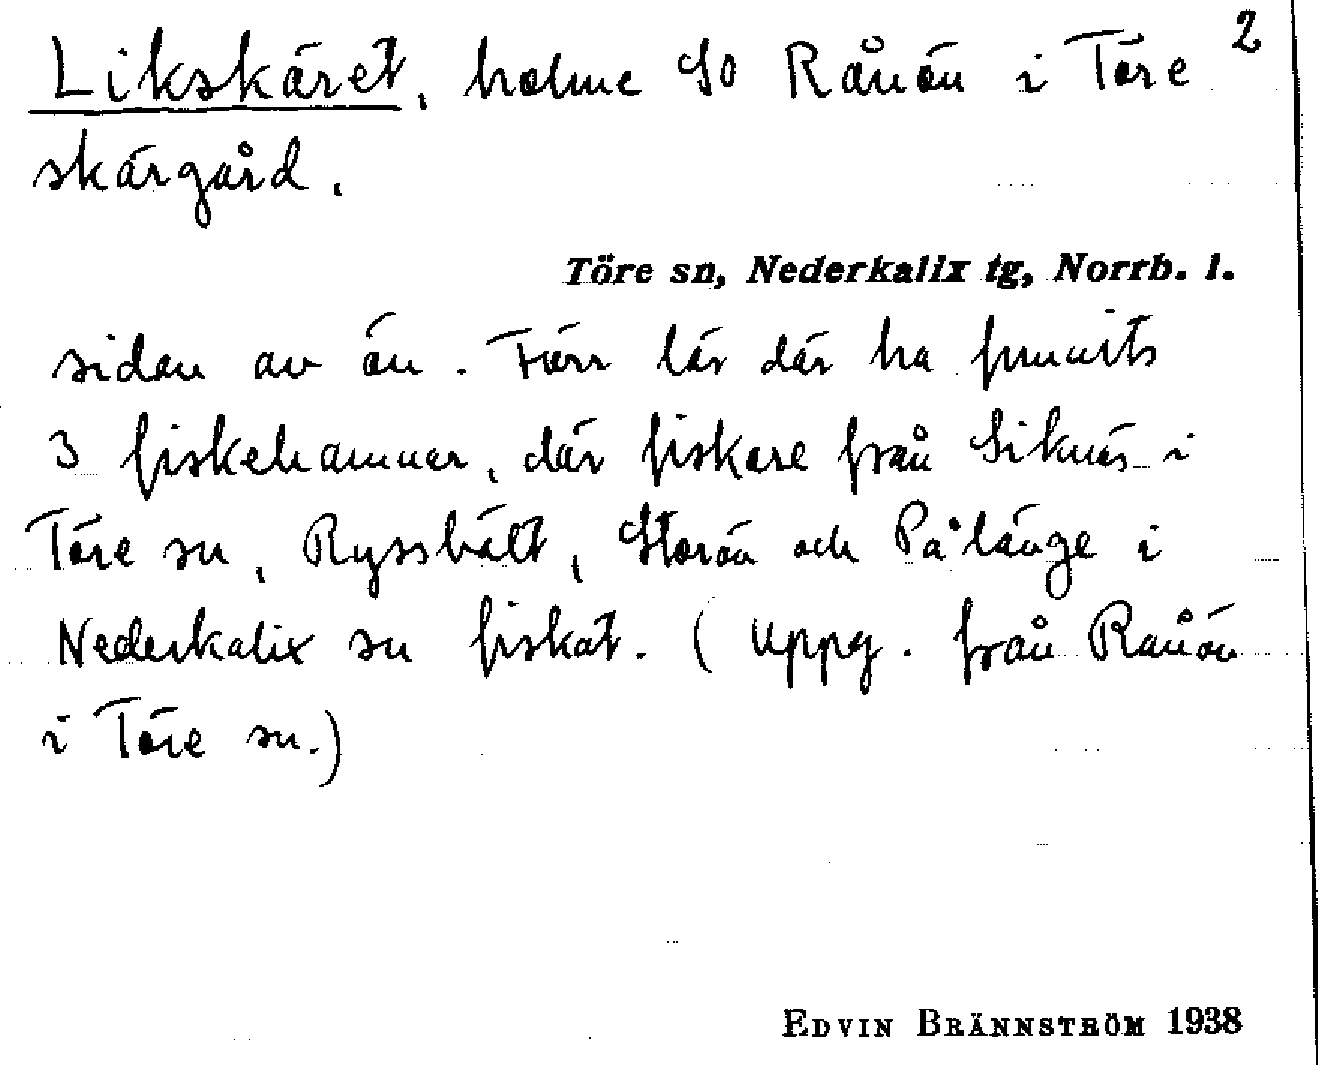 Likskäret, holme SO Rånön i Töre 2
skärgård.
Töre sn, Nederkalix tg, Norrb. l.
sidan av ön. Förr lär där ha funnits
3 fiskehamnar, där fiskare från Siknäs i
Töre sn, Ryssbält, Storön och Pålänge i
Nederkalix sn fiskat. (Uppg. från Rånön
i Töre sn.)
EDVIN BRÄNNSTRÖM 1938